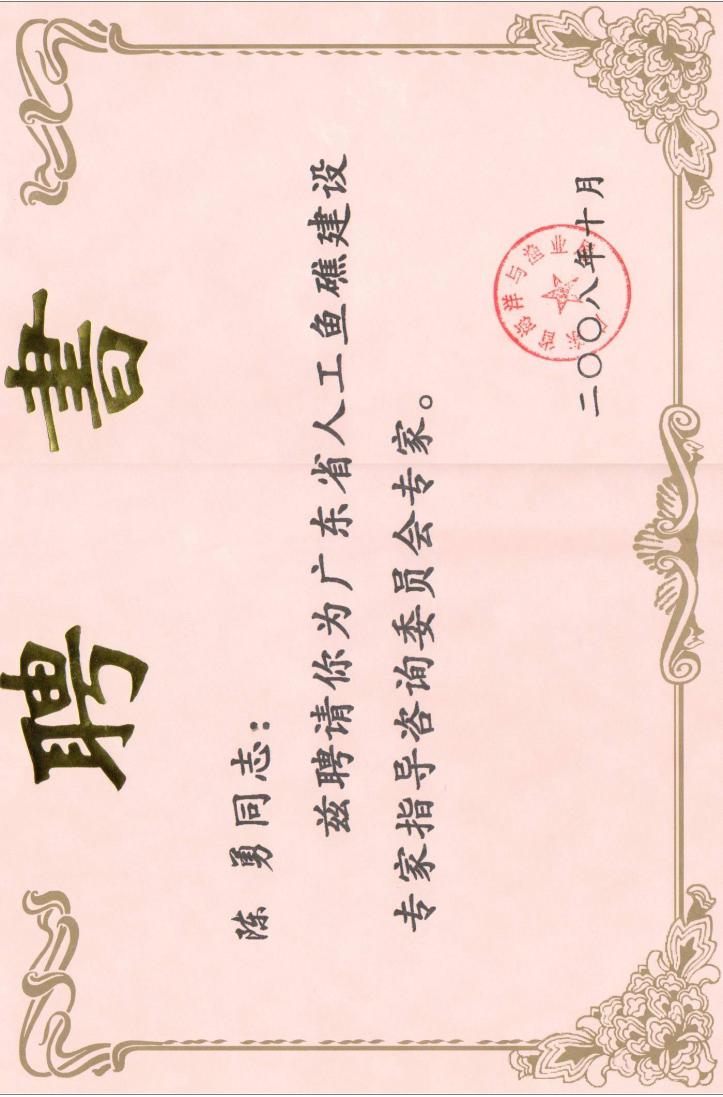 聘書
陈勇同志：
兹聘请你为广东省人工鱼礁建设
专家指导咨询委员会专家。
广东省海洋与渔业局
二〇〇八年十月